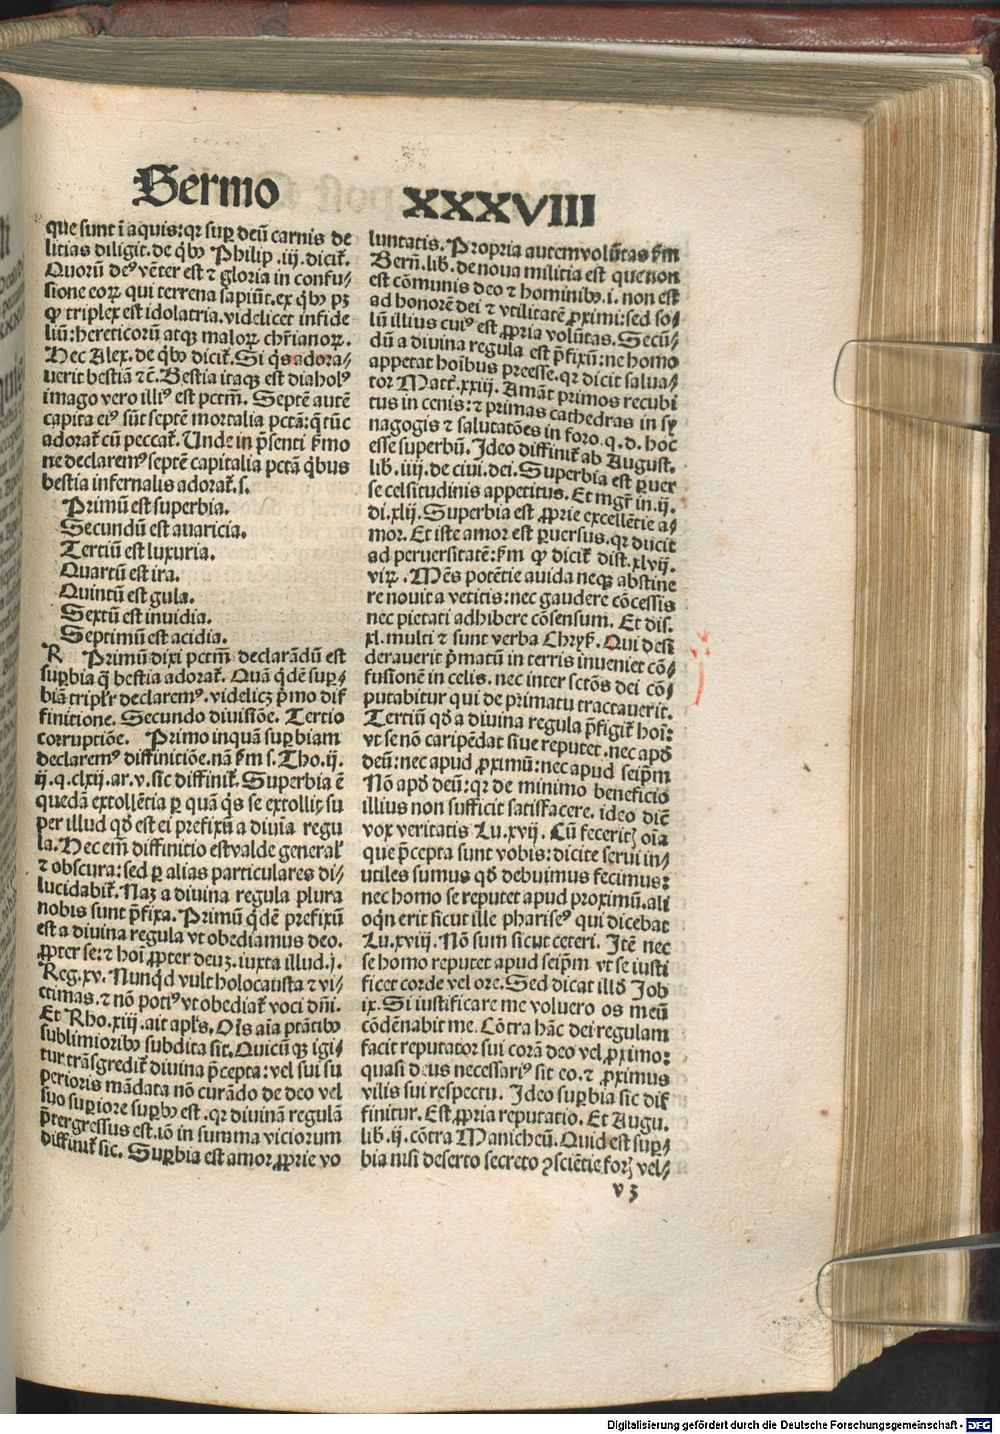 Sermo
XXXVIII
que sunt ĩ aquis: qꝛ suꝑ deū carnis de
litias diligit. de q̈bꝰ Philip .iij. dicit̃.
Quorū deꝰ vēter est ⁊ gloria in confu⸗
sione eoꝝ qui terrena sapiūt. ex q̈bꝰ pꝫ
ꝙ triplex est idolatria. videlicet infide
liū: hereticorū atqꝫ maloꝝ chr̄ianoꝝ.
Hec Alex. de q̈bꝰ dicit̃. Si q̈s adora⸗
uerit bestiā ⁊c̄. Bestia itaqꝫ est diabolꝰ
imago vero illiꝰ est pctm̄. Septē autē
capita eiꝰ sūt septē mortalia pctā: q̄ tūc
adorat̃ cū peccat̃. Unde in p̄senti s̄mo
ne declaremꝰ septē capitalia pctā q̈bus
bestia infernalis adorat̃. s.
Primū est superbia.
Secundū est auaricia.
Tertiū est luxuria.
Quartū est ira.
Quintū est gula.
Sextū est inuidia.
Septimū est acidia.
R Primū dixi pctm̄ declarādū est
suꝑbia q̄ bestia adorat̃. Quā q̈dē suꝑ⸗
biā triplr̄ declaremꝰ. videlicꝫ p̄mo dif
finitione. Secundo diuisiōe. Tertio
corruptiōe. Primo inquā suꝑbiam
declaremꝰ diffinitiōe. nā s̄m s. Tho. ij.
ij. q. clxij. ar. v. sic diffinit̃. Superbia ē
quedā extollētia ꝑ quā q̈s se extollit su
per illud qð est ei prefixū a diuīa regu
la. Hec em̄ diffinitio est valde general̓
⁊ obscura: sed ꝑ alias particulares di⸗
lucidabit̃. Naꝫ a diuina regula plura
nobis sunt p̄fixa. Primū q̈dē prefixū
est a diuina regula vt obediamus deo.
ꝓpter se: ⁊ hoī ꝓpter deuꝫ. iuxta illud. j.
Reg. xv. Nunq̈d vult holocausta ⁊ vi⸗
ctimas. ⁊ nō potiꝰ vt obediat̃ voci dn̄i.
Et Rho. xiij. ait apl̓s. Oīs aīa ptātibꝰ
sublimioribꝰ subdita sit. Quicūqꝫ igi⸗
tur trāsgredit̃ diuina p̄cepta: vel sui su
perioris mādata nō curādo de deo vel
suo suꝑiore suꝑbꝰ est. qꝛ diuinā regulā
p̄tergressus est. iō in summa viciorum
diffinit̃ sic. Suꝑbia est amor ꝓprie vo
luntatis. Propria autem volūtas s̄m
Bern̄. lib. de noua militia est que non
est cōmunis deo ⁊ hominibꝰ. i. non est
ad honorē dei ⁊ vtilitatē ꝓximi: sed so⸗
lū illius cuiꝰ est ꝓpria volūtas. Secū⸗
dū a diuina regula est p̄fixū: ne homo
appetat hoībus preesse. qꝛ dicit salua⸗
tor Matt̃. xxiij. Amāt primos recubi
tus in cenis: ⁊ primas cathedras in sy
nagogis ⁊ salutatōes in foro. q. d. hoc
esse superbū. Ideo diffinit̃ ab August.
lib. iiij. de ciui. dei. Superbia est ꝑuer
se celsitudinis appetitus. Et mgr̄ in. ij.
di. xlij. Superbia est ꝓprie excellētie a⸗
mor. Et iste amor est ꝑuersus. qꝛ ducit
ad peruersitatē: s̄m ꝙ dicit̃ dist. xlvij.
viꝝ. Mēs potētie auida neqꝫ abstine
re nouit a vetitis: nec gaudere cōcessis
nec pietati adhibere cōsensum. Et dis.
xl. multi ⁊ sunt verba Chryſ. Qui desi
derauerit p̄matū in terris inueniet cō⸗
fusionē in celis. nec inter sctōs dei cō⸗
putabitur qui de primatu tractauerit.
Tertiū qð a diuina regula p̄figit̃ hoī:
vt se nō caripēdat siue reputet. nec apð
deū: nec apud ꝓximū: nec apud seip̄m
Nō apð deū: qꝛ de minimo beneficio
illius non sufficit satisfacere. ideo diē
vox veritatis Lu. xvij. Cū feceritꝭ oīa
que p̄cepta sunt vobis: dicite serui in⸗
utiles sumus qð debuimus fecimus:
nec homo se reputet apud proximū. ali
oqn̄ erit sicut ille phariseꝰ qui dicebat
Lu. xviij. Nō sum sicut ceteri. Itē nec
se homo reputet apud seip̄m vt se iusti
ficet corde vel ore. Sed dicat illð Job
ix. Si iustificare me voluero os meū
cōdēnabit me. Cōtra hāc dei regulam
facit reputator sui corā deo vel ꝓximo:
quasi deus necessariꝰ sit eo. ⁊ ꝓximus
vilis sui respectu. Ideo suꝑbia sic dif
finitur. Est ꝓpria reputatio. Et Augu.
lib. ij. cōtra Manicheū. Quid est suꝑ⸗
bia nisi deserto secreto ꝯsciētie forꝭ vel⸗
v 3
Digitalisierung gefördert durch die Deutsche Forschungsgemeinschaft - DFG